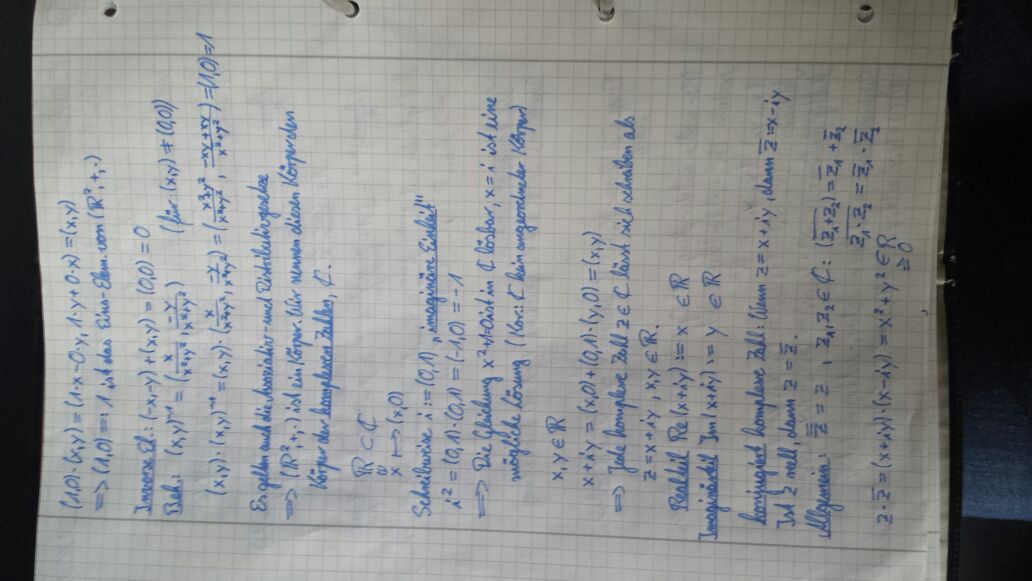 (1,0)·(x,y) = (1·x-0·y, 1·y+0·x) = (x,y)
⟹ (1,0) =: 1 ist das Eins-Elem. von (ℝ²,+,·)
Inverse El.: (-x,-y) + (x,y) = (0,0) = 0
(x,y)⁻¹ = (x/(x²+y²), -y/(x²+y²)) (für (x,y) ≠ (0,0))
(x,y)·(x,y)⁻¹ = (x,y)·(x/(x²+y²), -y/(x²+y²)) = ((x²+y²)/(x²+y²), (-xy+xy)/(x²+y²)) = (1,0) = 1
Es gelten auch die Assoziativ- und Distributivgesetze
⟹ (ℝ²,+,·) ist ein Körper. Wir nennen diesen Körper den
Körper der komplexen Zahlen, ℂ.
ℝ ⊂ ℂ
x ⟼ (x,0)
Schreibweise i := (0,1) „imaginäre Einheit"
i² = (0,1)·(0,1) = (-1,0) = -1
⟹ Die Gleichung x²+1=0 ist in ℂ lösbar, x=i ist eine
mögliche Lösung (Kor.: ℂ kein angeordneter Körper)
x,y ∈ ℝ
x+iy = (x,0) + (0,1)·(y,0) = (x,y)
⟹ Jede komplexe Zahl z ∈ ℂ lässt sich schreiben als
z = x+iy, x,y ∈ ℝ.
Realteil Re(x+iy) := x ∈ ℝ
Imaginärteil Im(x+iy) := y ∈ ℝ
konjugiert komplexe Zahl: Wenn z = x+iy, dann z̅ = x-iy
Ist z reell, dann z = z̅.
Allgemein: z̿ = z, z₁,z₂ ∈ ℂ: (z₁+z₂)̅ = z̅₁+z̅₂
(z₁·z₂)̅ = z̅₁·z̅₂
z·z̅ = (x+iy)·(x-iy) = x²+y² ∈ ℝ
≥ 0